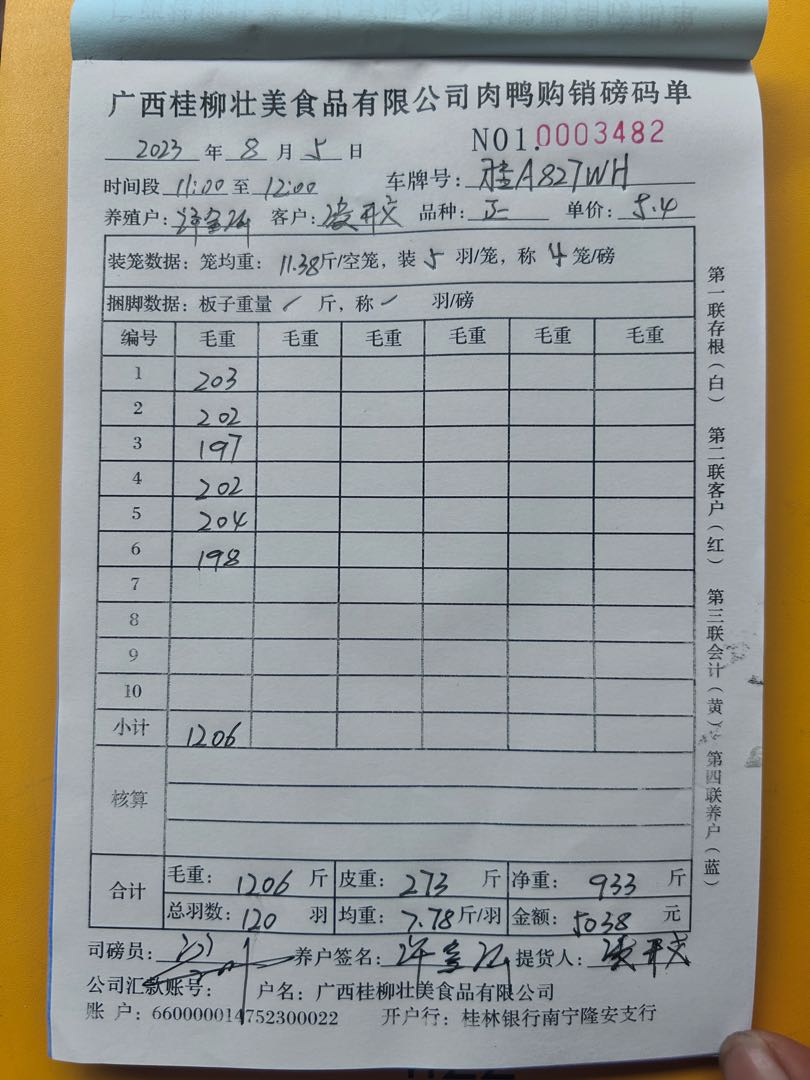 广西桂柳壮美食品有限公司肉鸭购销磅码单
2023 年 8 月 5 日 NO1.0003482
时间段 11:00 至 12:00 车牌号: 桂A827WH
养殖户: 客户: 凌开文 品种: 正 单价: 5.4
装笼数据: 笼均重: 11.38斤/空笼, 装 5 羽/笼, 称 4 笼/磅
捆脚数据: 板子重量 / 斤, 称 / 羽/磅
编号 毛重 毛重 毛重 毛重 毛重 毛重
1 203
2 202
3 197
4 202
5 204
6 198
7
8
9
10
小计 1206
核算
合计 毛重: 1206 斤 皮重: 273 斤 净重: 933 斤
总羽数: 120 羽 均重: 7.78斤/羽 金额: 5038 元
司磅员: 养户签名: 提货人: 凌开文
公司汇款账号: 户名: 广西桂柳壮美食品有限公司
账 户: 660000014752300022 开户行: 桂林银行南宁隆安支行
第一联存根(白) 第二联客户(红) 第三联会计(黄) 第四联养户(蓝)